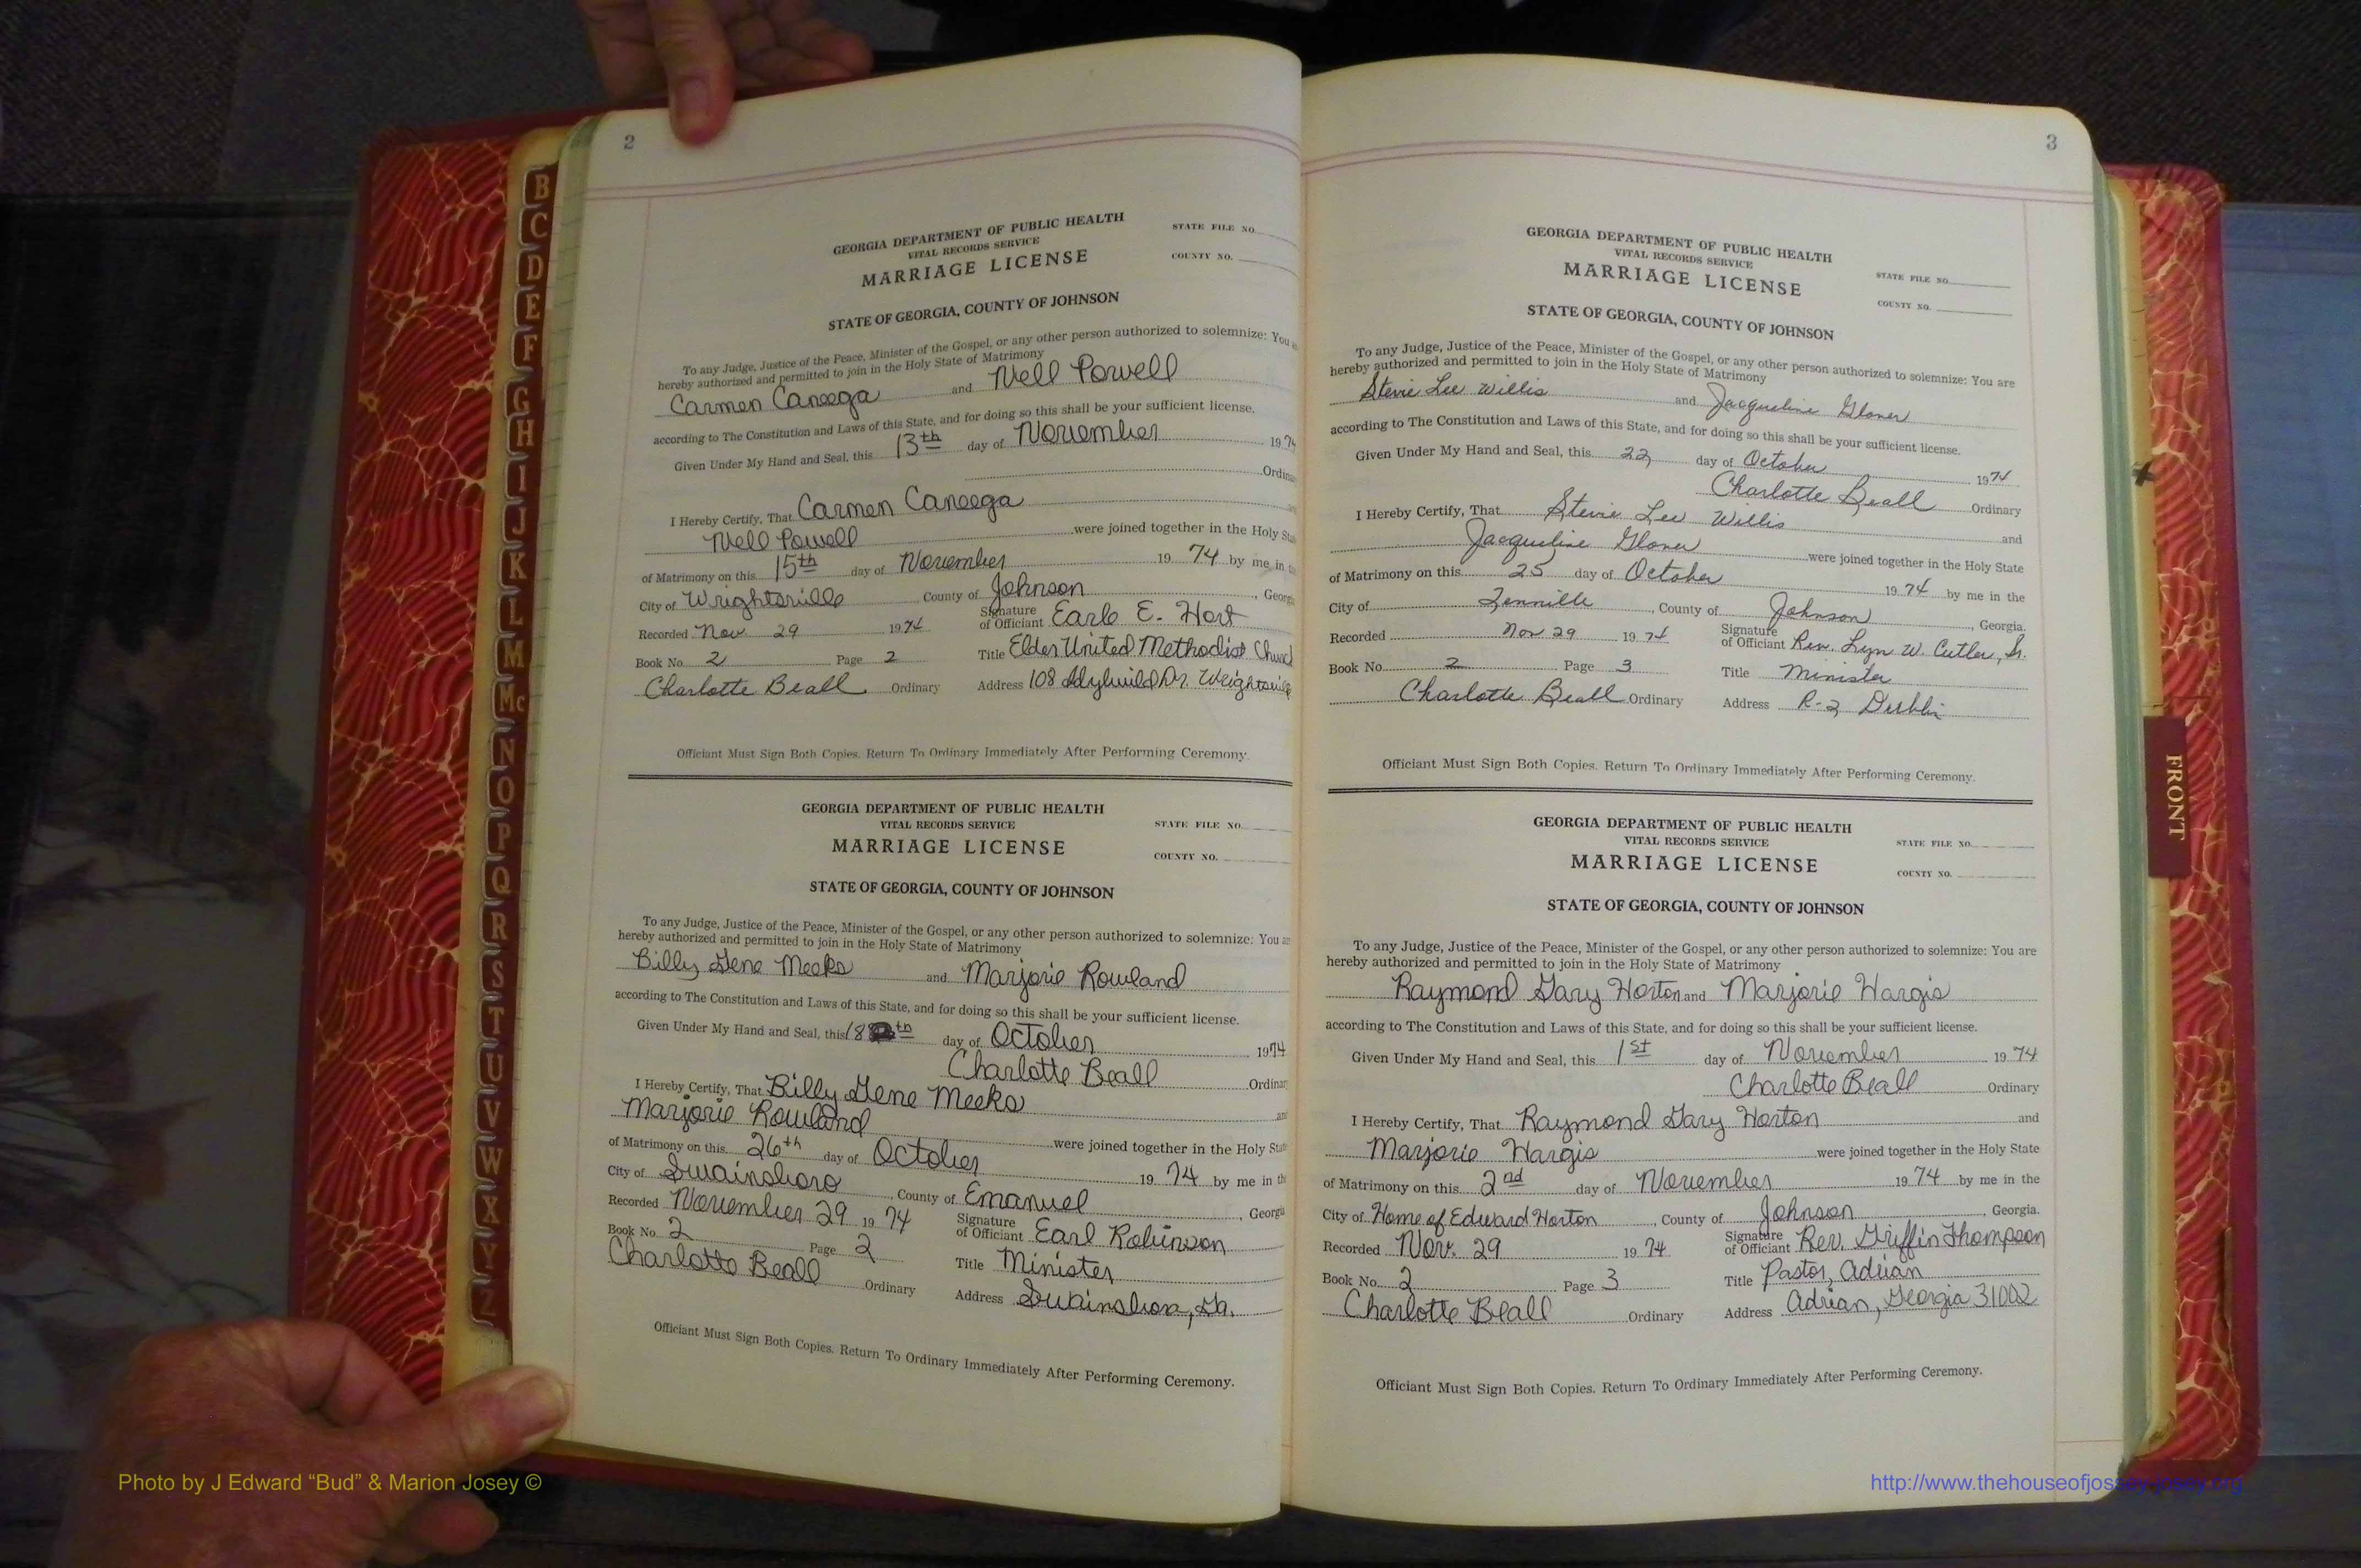 2
GEORGIA DEPARTMENT OF PUBLIC HEALTH
VITAL RECORDS SERVICE
MARRIAGE LICENSE
STATE FILE NO.
COUNTY NO.
STATE OF GEORGIA, COUNTY OF JOHNSON
To any Judge, Justice of the Peace, Minister of the Gospel, or any other person authorized to solemnize: You
hereby authorized and permitted to join in the Holy State of Matrimony
Carmen Caneega and Nell Powell
according to The Constitution and Laws of this State, and for doing so this shall be your sufficient license.
Given Under My Hand and Seal, this 13th day of November 1974
Ordina
I Hereby Certify, That Carmen Caneega
Nell Powell were joined together in the Holy Sta
of Matrimony on this 15th day of November 19 74 by me in
City of Wrightsville County of Johnson, Georgia
Recorded Nov 29 1974 Signature of Officiant Earle E. Hart
Book No. 2 Page 2 Title Elder United Methodist Church
Charlotte Beall Ordinary Address 108 Idylwild Dr. Wrightsville
Officiant Must Sign Both Copies. Return To Ordinary Immediately After Performing Ceremony.
GEORGIA DEPARTMENT OF PUBLIC HEALTH
VITAL RECORDS SERVICE
MARRIAGE LICENSE
STATE FILE NO.
COUNTY NO.
STATE OF GEORGIA, COUNTY OF JOHNSON
To any Judge, Justice of the Peace, Minister of the Gospel, or any other person authorized to solemnize: You
hereby authorized and permitted to join in the Holy State of Matrimony
Billy Gene Meeks and Marjorie Rowland
according to The Constitution and Laws of this State, and for doing so this shall be your sufficient license.
Given Under My Hand and Seal, this 18th day of October 1974
Charlotte Beall Ordinar
I Hereby Certify, That Billy Gene Meeks
Marjorie Rowland were joined together in the Holy Sta
of Matrimony on this 26th day of October 19 74 by me in th
City of Swainsboro, County of Emanuel, Georgia
Recorded November 29 19 74 Signature of Officiant Earl Robinson
Book No. 2 Page 2 Title Minister
Charlotte Beall Ordinary Address Swainsboro, Ga.
Officiant Must Sign Both Copies. Return To Ordinary Immediately After Performing Ceremony.
3
GEORGIA DEPARTMENT OF PUBLIC HEALTH
VITAL RECORDS SERVICE
MARRIAGE LICENSE
STATE FILE NO.
COUNTY NO.
STATE OF GEORGIA, COUNTY OF JOHNSON
To any Judge, Justice of the Peace, Minister of the Gospel, or any other person authorized to solemnize: You are
hereby authorized and permitted to join in the Holy State of Matrimony
Stevie Lee Willis and Jacqueline Glover
according to The Constitution and Laws of this State, and for doing so this shall be your sufficient license.
Given Under My Hand and Seal, this 22 day of October 1974
Charlotte Beall Ordinary
I Hereby Certify, That Stevie Lee Willis and
Jacqueline Glover were joined together in the Holy State
of Matrimony on this 25 day of October 19 74 by me in the
City of Tennille, County of Johnson, Georgia.
Recorded Nov 29 19 74 Signature of Officiant Rev. Lyn W. Cutler, Sr.
Book No. 2 Page 3 Title Minister
Charlotte Beall Ordinary Address R-2 Dublin
Officiant Must Sign Both Copies. Return To Ordinary Immediately After Performing Ceremony.
GEORGIA DEPARTMENT OF PUBLIC HEALTH
VITAL RECORDS SERVICE
MARRIAGE LICENSE
STATE FILE NO.
COUNTY NO.
STATE OF GEORGIA, COUNTY OF JOHNSON
To any Judge, Justice of the Peace, Minister of the Gospel, or any other person authorized to solemnize: You are
hereby authorized and permitted to join in the Holy State of Matrimony
Raymond Gary Horton and Marjorie Hargis
according to The Constitution and Laws of this State, and for doing so this shall be your sufficient license.
Given Under My Hand and Seal, this 1st day of November 19 74
Charlotte Beall Ordinary
I Hereby Certify, That Raymond Gary Horton and
Marjorie Hargis were joined together in the Holy State
of Matrimony on this 2nd day of November 19 74 by me in the
City of Home of Edward Horton, County of Johnson, Georgia.
Recorded Nov. 29 19 74 Signature of Officiant Rev. Griffin Thompson
Book No. 2 Page 3 Title Pastor, Adrian
Charlotte Beall Ordinary Address Adrian, Georgia 31002
Officiant Must Sign Both Copies. Return To Ordinary Immediately After Performing Ceremony.
B
C
D
E
F
G
H
I
J
K
L
M
Mc
N
O
P
Q
R
S
T
U
V
W
X
Y
Z
FRONT
Photo by J Edward “Bud” & Marion Josey ©
http://www.thehouseofjossey-josey.org